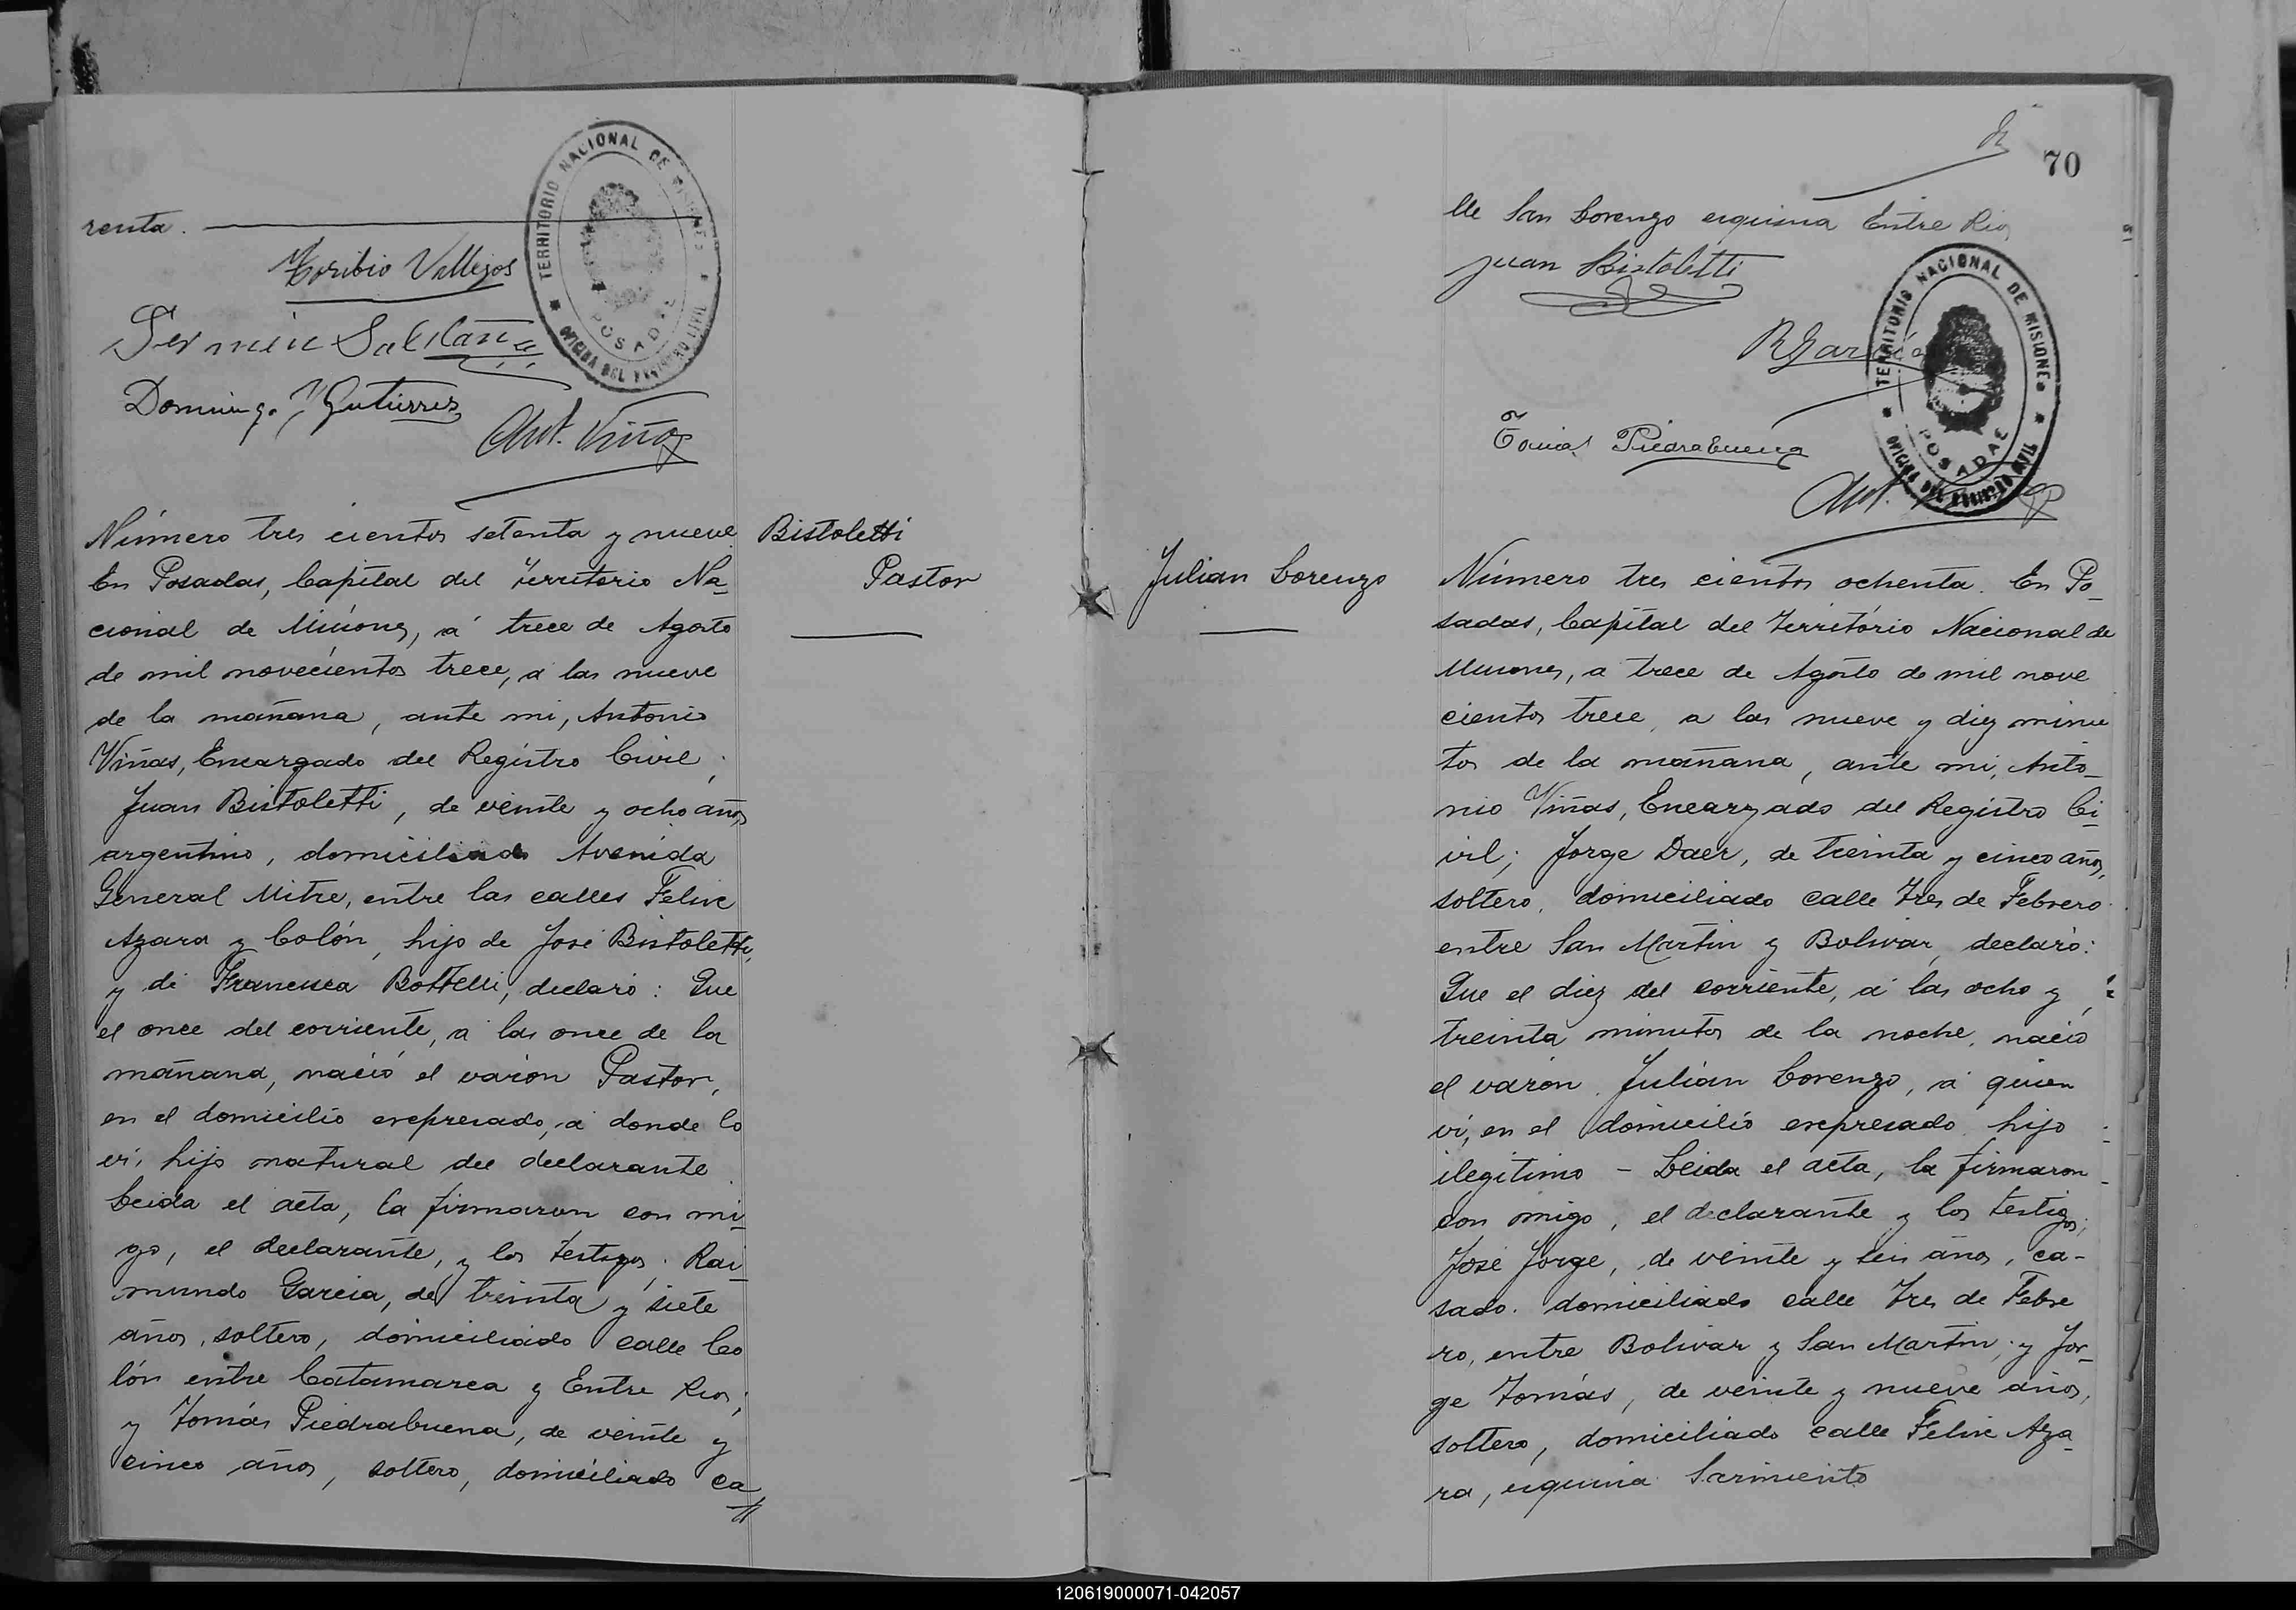 renta.
Toribio Vallejos
Fermin Saldaña
Domingo Gutierres
Ant. Viñas
TERRITORIO NACIONAL DE MISIONES
POSADAS
OFICINA DEL REGISTRO CIVIL
Número tres cientos setenta y nueve
En Posadas, Capital del Territorio Na_
cional de Misiones, á trece de Agosto
de mil novecientos trece, á las nueve
de la mañana, ante mi, Antonio
Viñas, Encargado del Registro Civil;
Juan Bistoletti, de veinte y ocho años
argentino, domiciliado Avenida
General Mitre, entre las calles Felix
Azara y Colón, hijo de José Bistoletti,
y de Francisca Bottelli, declaró: Que
el once del corriente, á las once de la
mañana, nació el varón Pastor,
en el domicilio expresado, á donde lo
vi, hijo natural del declarante
Leida el acta, la firmaron con mi_
go, el declarante, y los testigos; Rai_
mundo Garcia, de treinta y siete
años, soltero, domiciliado calle Co
lón entre Catamarca y Entre Rios;
y Tomás Piedrabuena, de veinte y
cinco años, soltero, domiciliado ca
Bistoletti
Pastor
70
lle San Lorenzo esquina Entre Rios
Juan Bistoletti
R Garcia
Tomas Piedrabuena
Ant.
TERRITORIO NACIONAL DE MISIONES
POSADAS
OFICINA DEL REGISTRO CIVIL
Julian Lorenzo
Número tres cientos ochenta. En Po_
sadas, Capital del Territorio Nacional de
Misiones, a trece de Agosto de mil nove
cientos trece, a las nueve y diez minu
tos de la mañana, ante mi, Anto_
nio Viñas, Encargado del Registro Ci_
vil; Jorge Daer, de treinta y cinco años,
soltero, domiciliado calle Tres de Febrero
entre San Martin y Bolivar, declaró:
Que el diez del corriente, á las ocho y
treinta minutos de la noche, nació
el varón Julián Lorenzo, á quien
vi, en el domicilio expresado, hijo
ilegitimo - Leida el acta, la firmaron
con migo, el declarante y los testigos;
José Jorge, de veinte y seis años, ca-
sado, domiciliado calle Tres de Febre
ro, entre Bolivar y San Martin; y Jor_
ge Tomás, de veinte y nueve años,
soltero, domiciliado calle Felix Aza_
ra, esquina Sarmiento
120619000071-042057